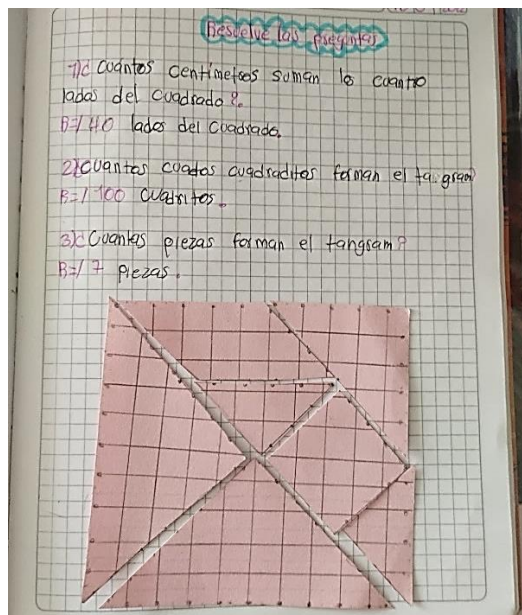 Resuelve las preguntas
1)¿ cuántos centímetros suman los cuatro
lados del cuadrado?.
R=/ 40 lados del cuadrado.
2)¿cuantos cuados cuadraditos forman el tangram
R=/ 100 cuadritos.
3)¿Cuantas piezas forman el tangram?
R=/ 7 piezas.